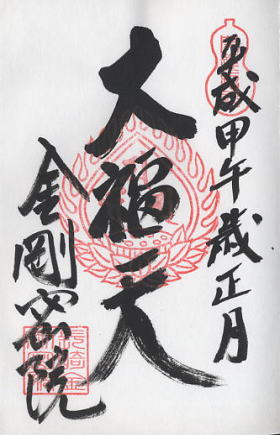 平成甲午歳正月
大福天
金剛密院